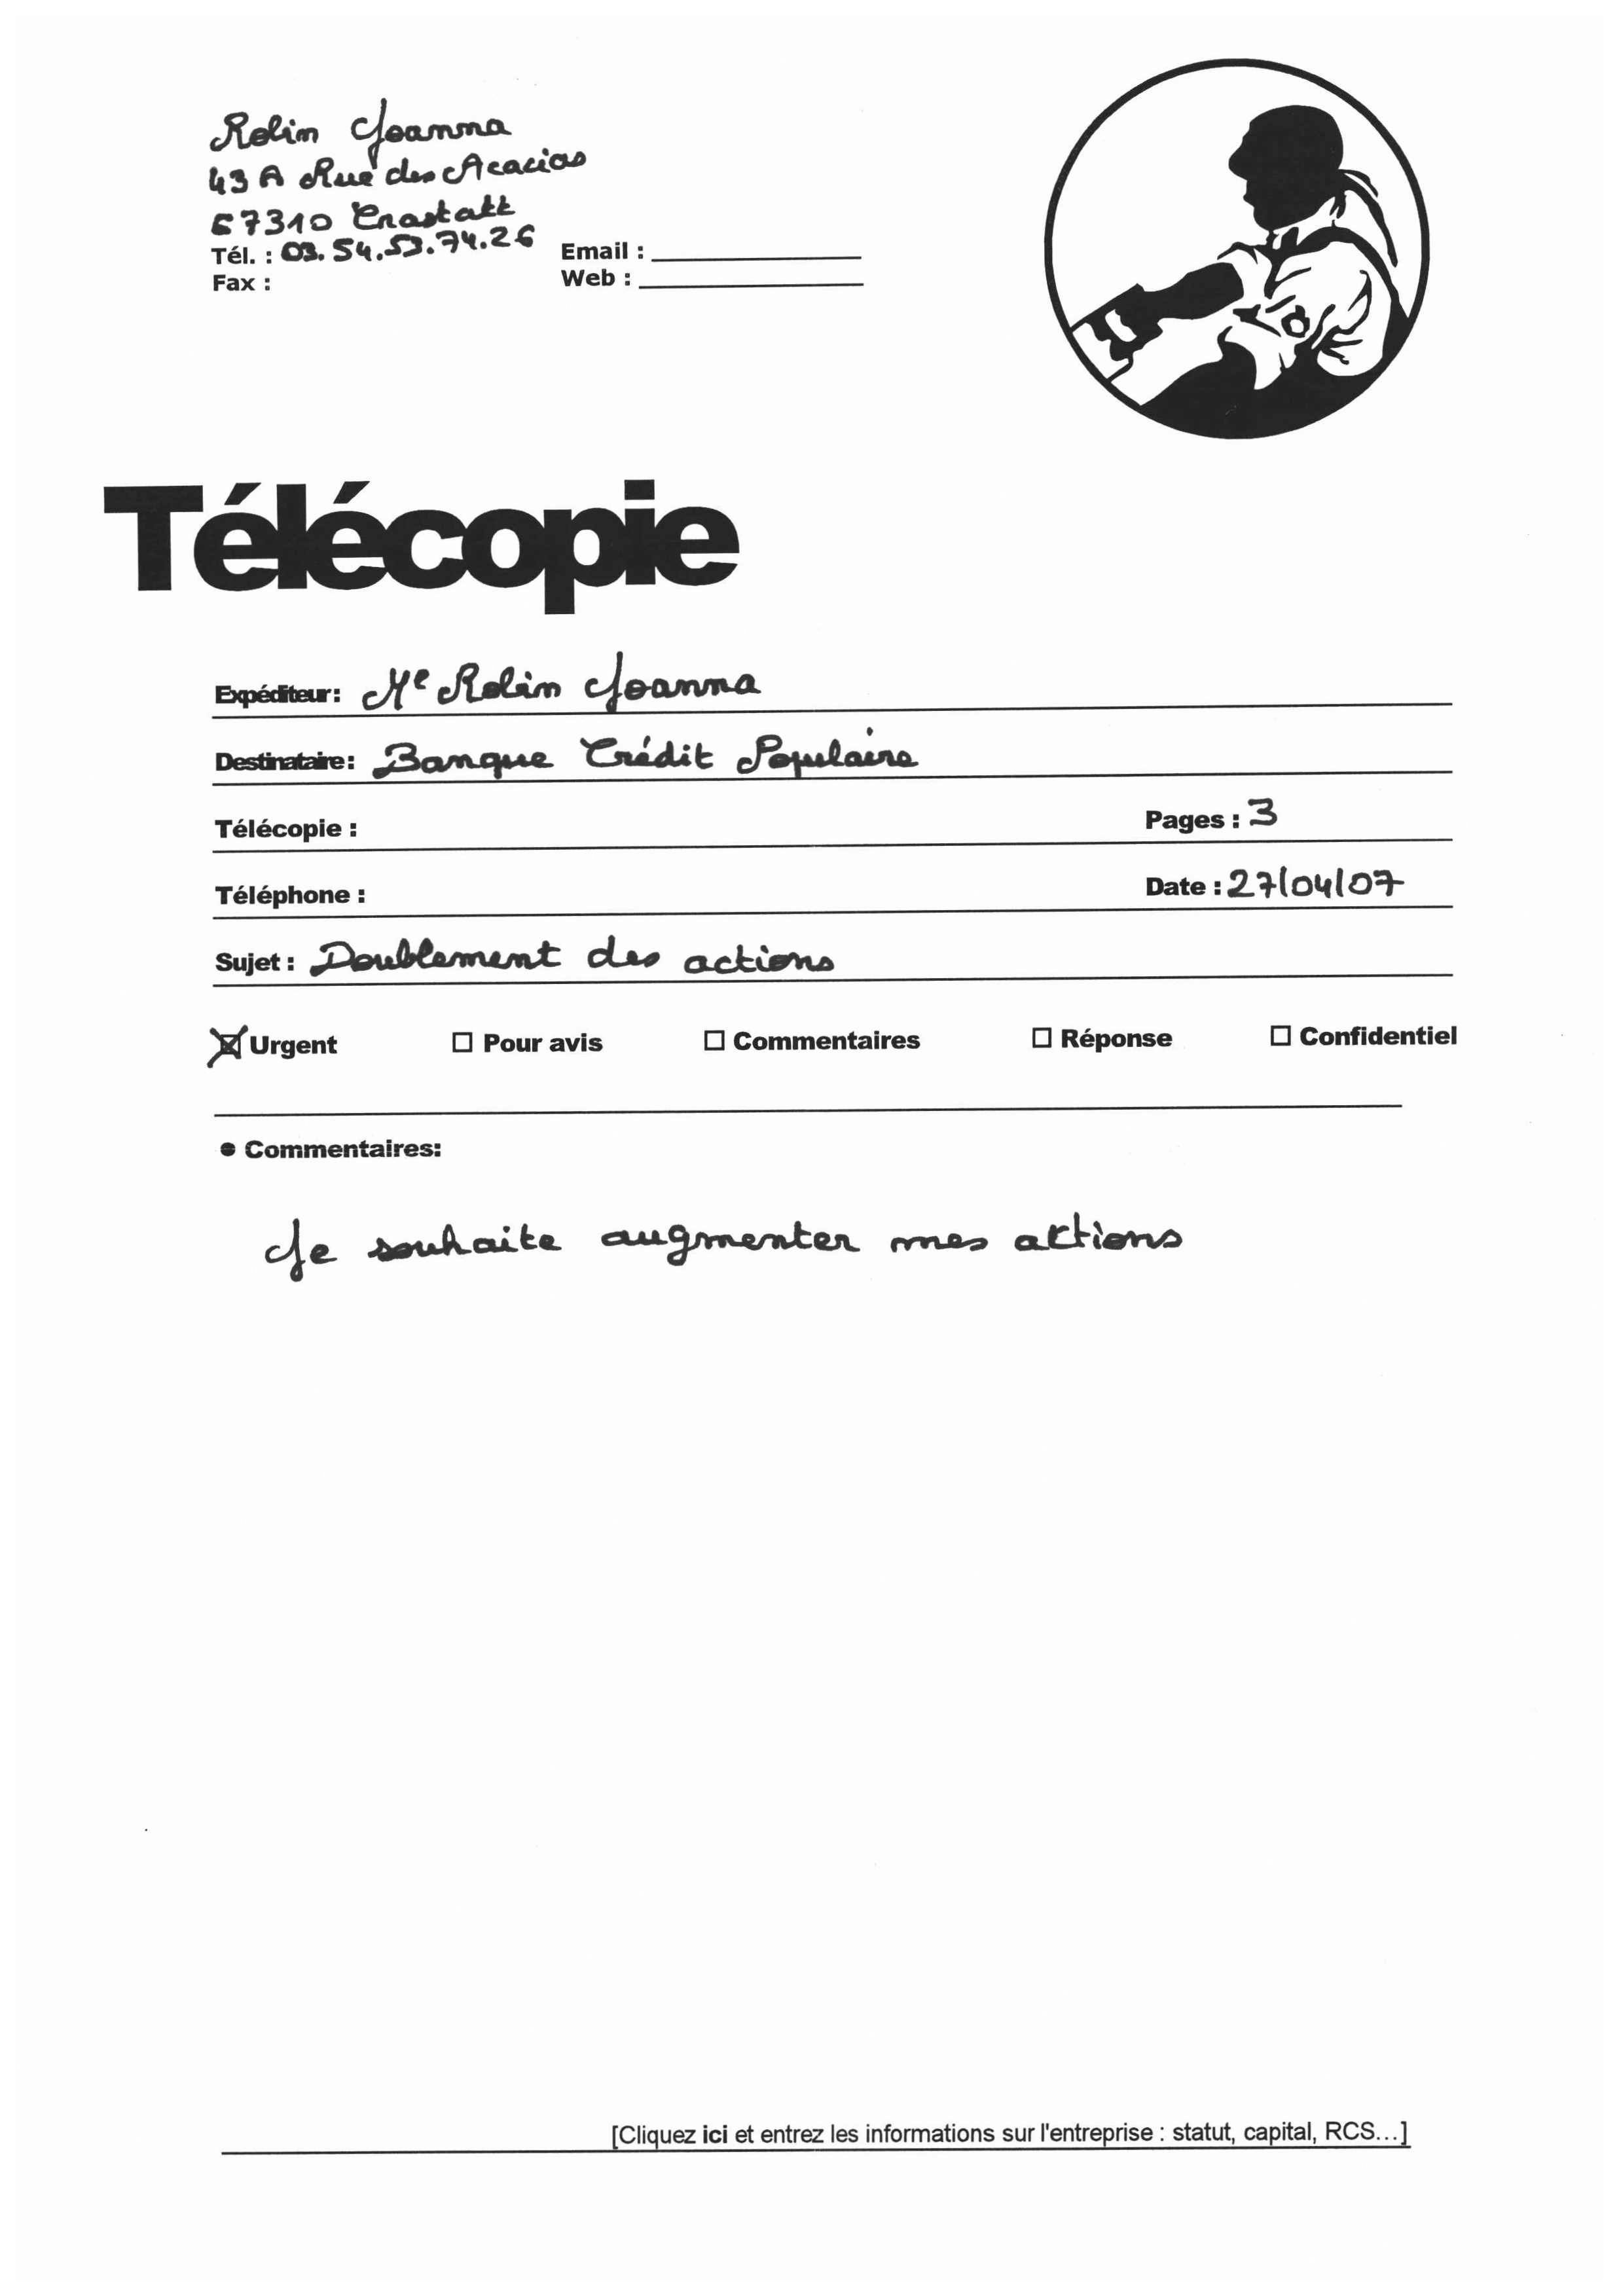 Rolin Joanna
43 A Rue des Acacias
67310 Crastatt
Tél. : 03.54.53.74.26
Fax :
Email :
Web :
Télécopie
Expéditeur: Me Rolin Joanna
Destinataire: Banque Crédit Populaire
Télécopie :
Pages : 3
Téléphone :
Date : 27/04/07
Sujet : Doublement des actions
Urgent
Pour avis
Commentaires
Réponse
Confidentiel
Commentaires:
Je souhaite augmenter mes actions
[Cliquez ici et entrez les informations sur l'entreprise : statut, capital, RCS...]